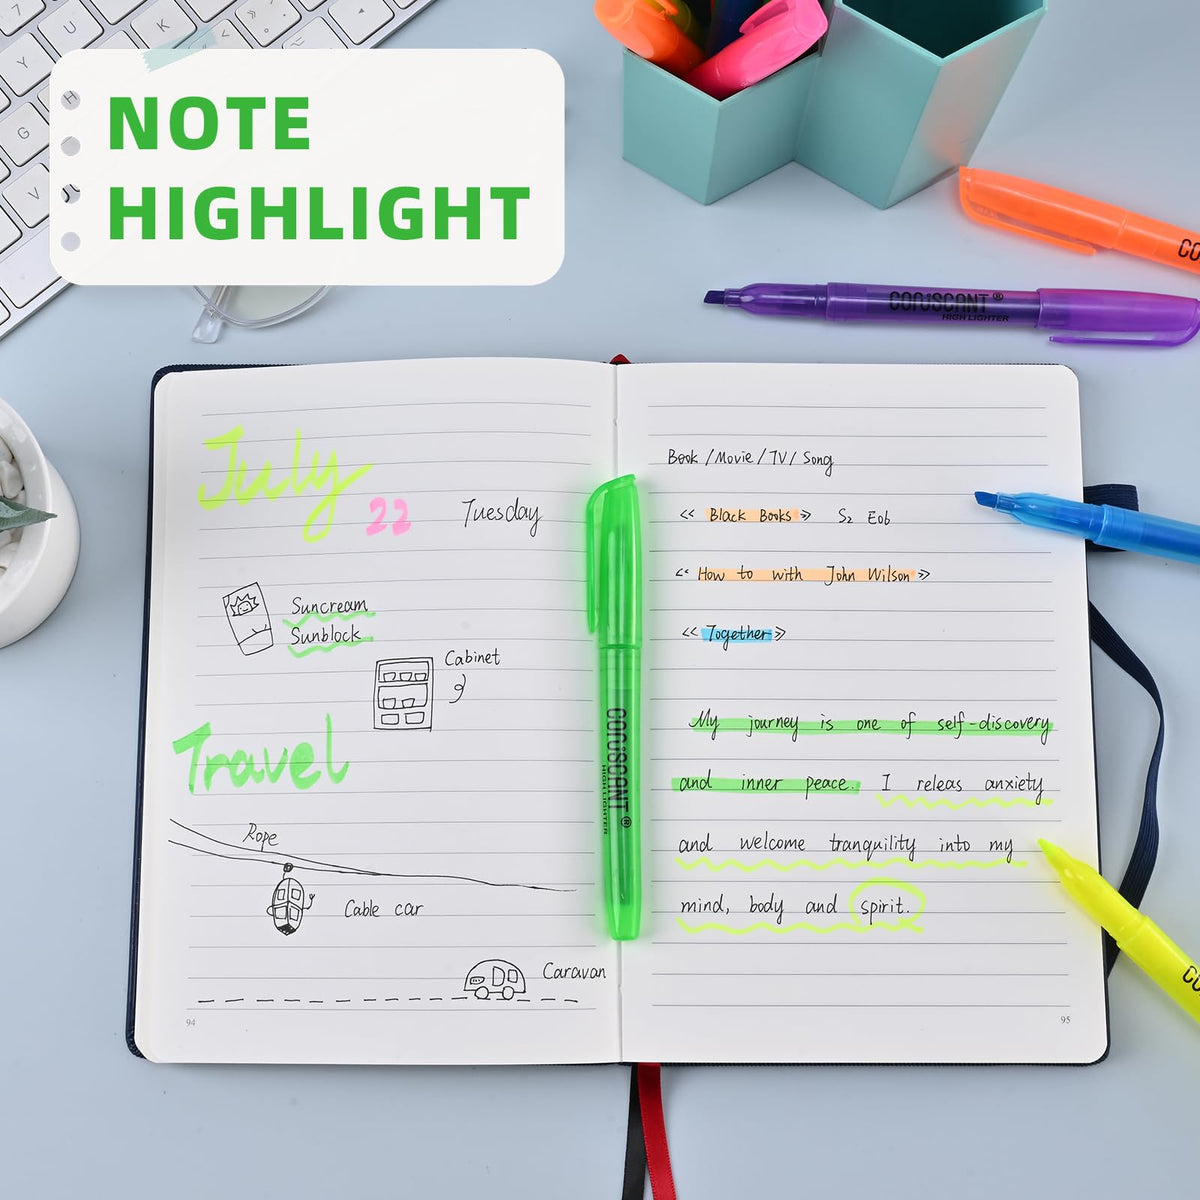 NOTE
HIGHLIGHT
July
22
Tuesday
Suncream
Sunblock
Cabinet
Travel
Rope
Cable car
Caravan
94
Book / Movie / TV / Song
<< Black Books >> S2 E06
<< How to with John Wilson >>
<< Together >>
My journey is one of self-discovery
and inner peace. I releas anxiety
and welcome tranquility into my
mind, body and spirit.
95
CORISCANT®
HIGHLIGHTER
CORISCANT®
HIGHLIGHTER
CO
CO
H
Y
G
V